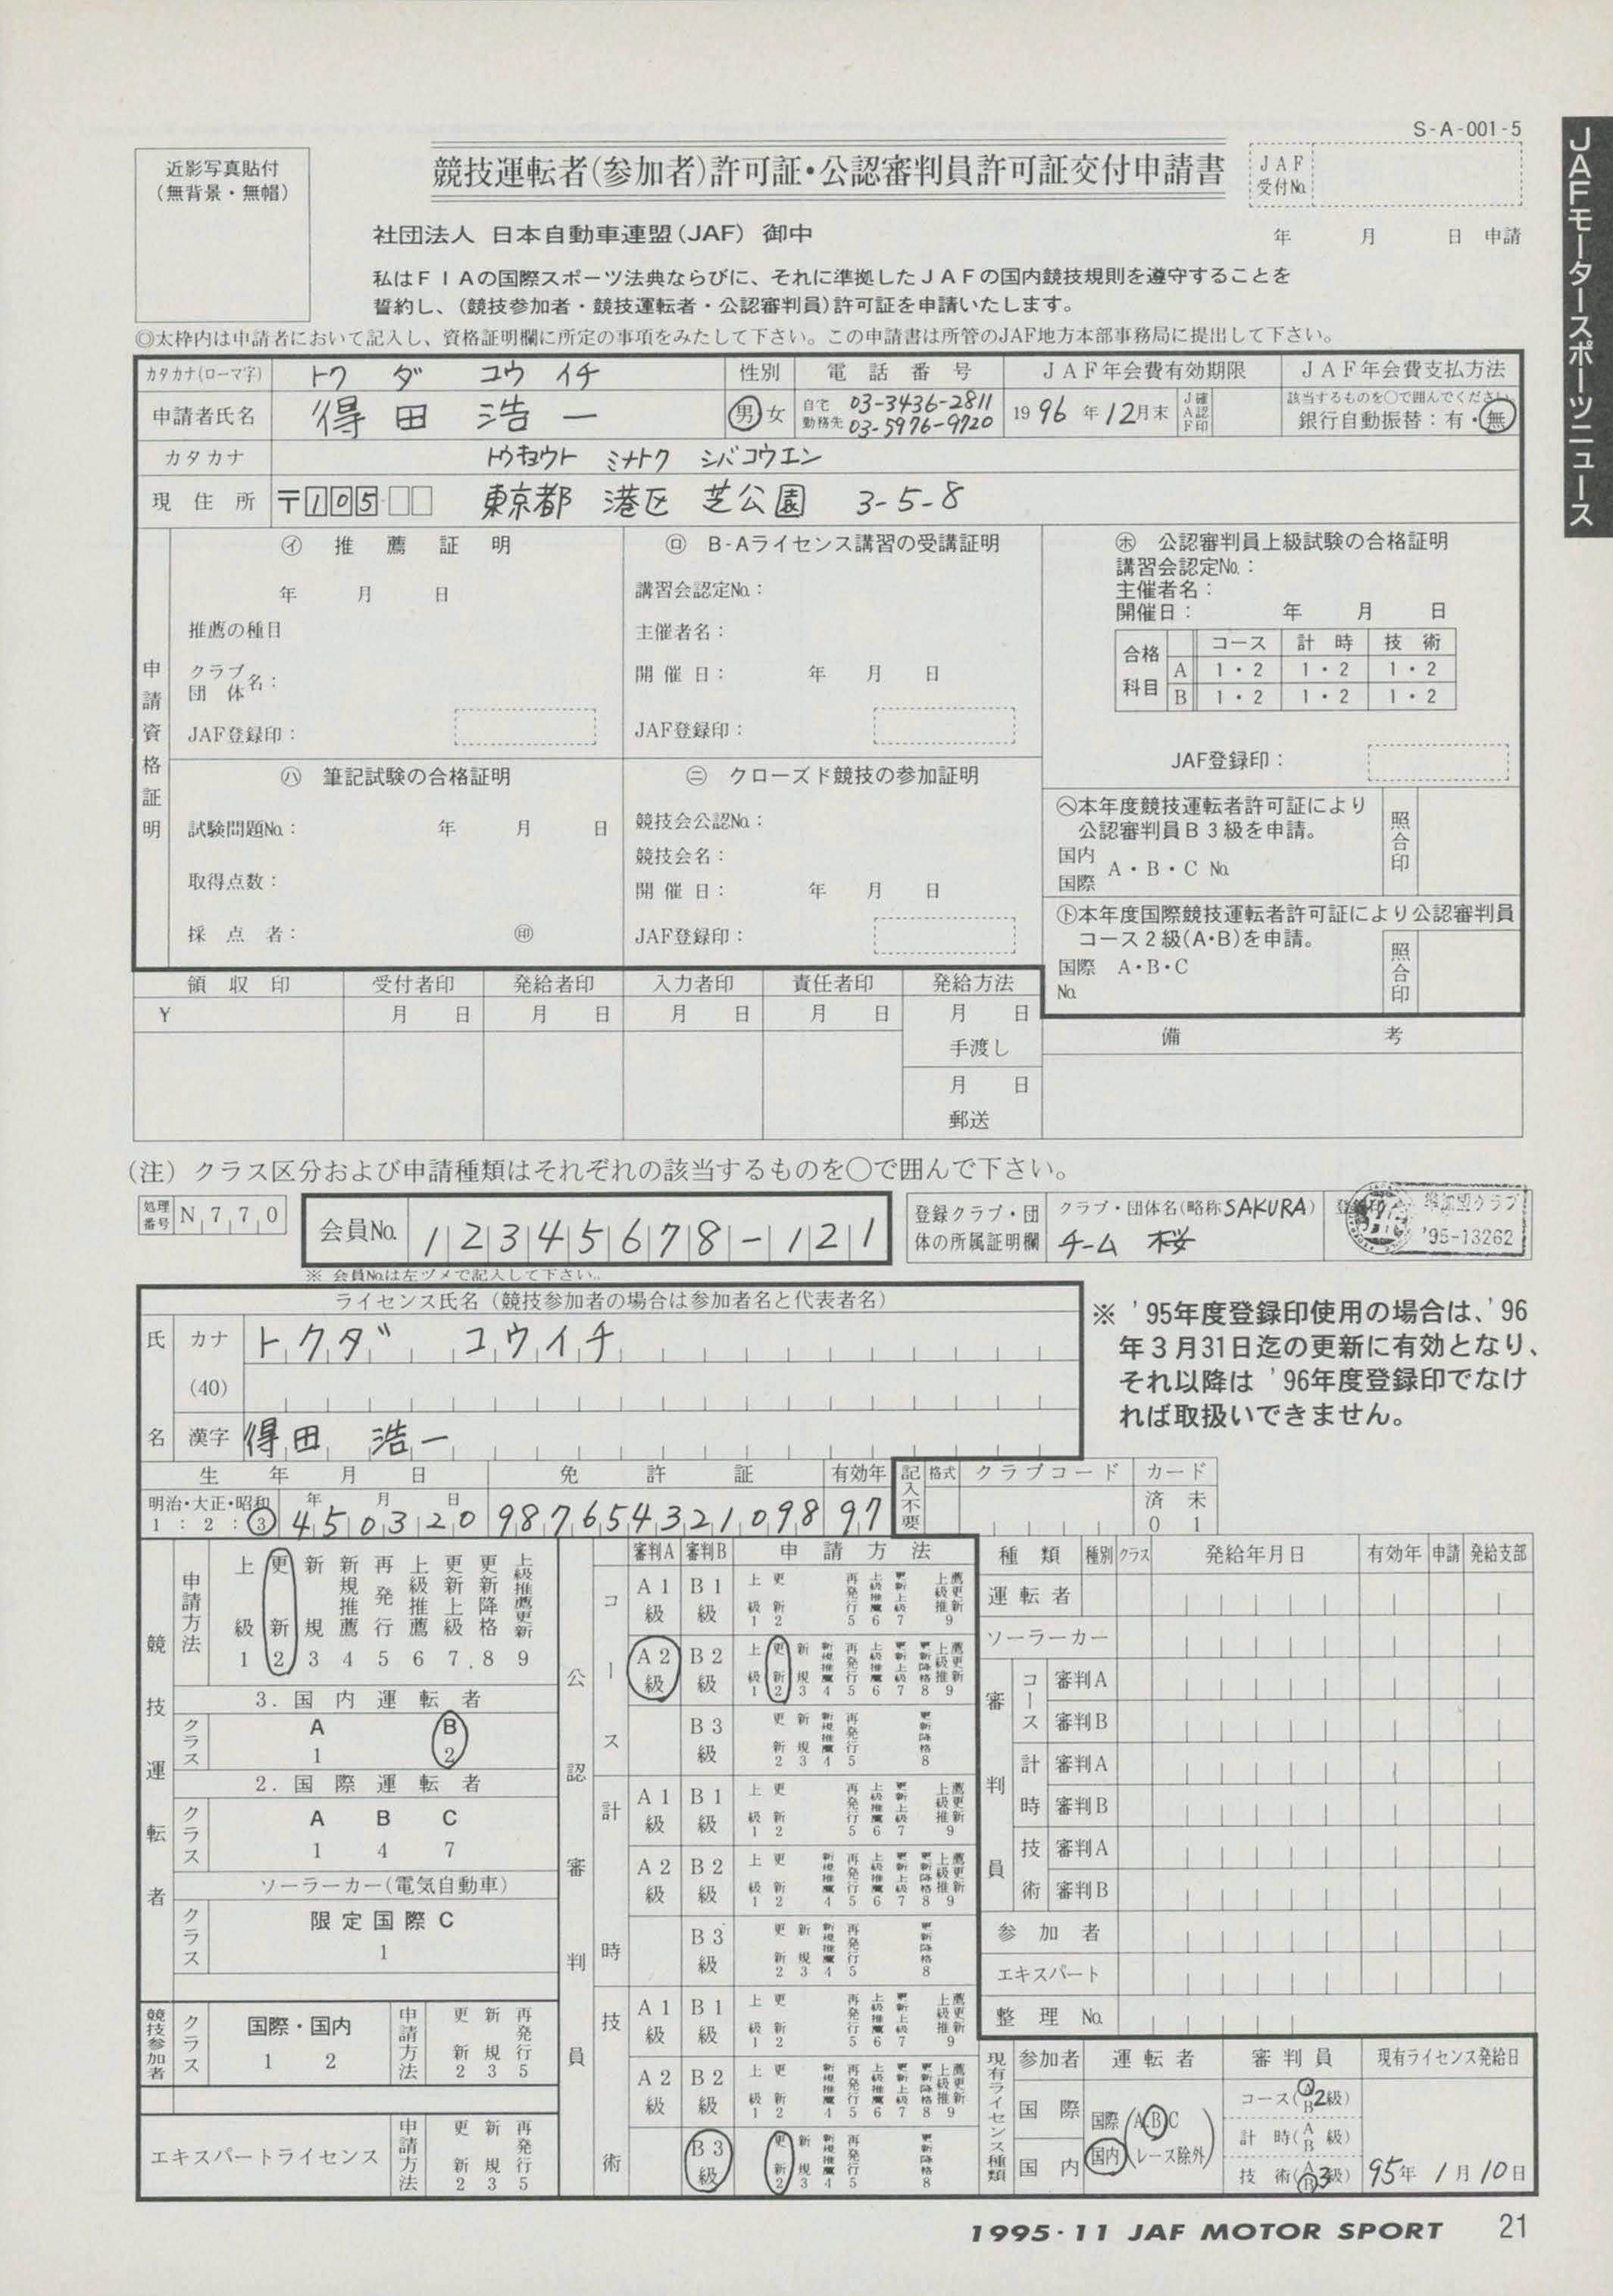 S-A-001-5
JAFモータースポーツニュース
近影写真貼付
(無背景・無帽)
競技運転者(参加者)許可証・公認審判員許可証交付申請書
JAF
受付No.
社団法人 日本自動車連盟(JAF) 御中
年 月 日 申請
私はFIAの国際スポーツ法典ならびに、それに準拠したJAFの国内競技規則を遵守することを
誓約し、(競技参加者・競技運転者・公認審判員)許可証を申請いたします。
◎太枠内は申請者において記入し、資格証明欄に所定の事項をみたして下さい。この申請書は所管のJAF地方本部事務局に提出して下さい。
カタカナ(ローマ字) トクダ コウイチ 性別 電話番号 JAF年会費有効期限 JAF年会費支払方法
申請者氏名 得田 浩一 男 女 自宅 03-3436-2811 1996年12月末 JAF確認印 該当するものを○で囲んでください。
勤務先 03-5976-9720 銀行自動振替:有・無
カタカナ トウキョウト ミナトク シバコウエン
現住所 〒105 東京都 港区 芝公園 3-5-8
申請資格証明
㋑ 推薦証明
年 月 日
推薦の種目
クラブ
団体名:
JAF登録印:
㋺ B-Aライセンス講習の受講証明
講習会認定No.:
主催者名:
開催日: 年 月 日
JAF登録印:
㋭ 公認審判員上級試験の合格証明
講習会認定No.:
主催者名:
開催日: 年 月 日
合格科目 コース 計時 技術
A 1・2 1・2 1・2
B 1・2 1・2 1・2
JAF登録印:
㋩ 筆記試験の合格証明
試験問題No.: 年 月 日
取得点数:
採点者: ㊞
㋥ クローズド競技の参加証明
競技会公認No.:
競技会名:
開催日: 年 月 日
JAF登録印:
㋬本年度競技運転者許可証により
公認審判員B3級を申請。
国内
国際 A・B・C No.
照合印
㋣本年度国際競技運転者許可証により公認審判員
コース2級(A・B)を申請。
国際 A・B・C
No.
照合印
領収印 受付者印 発給者印 入力者印 責任者印 発給方法
¥ 月 日 月 日 月 日 月 日 月 日
手渡し
月 日
郵送
備考
(注) クラス区分および申請種類はそれぞれの該当するものを○で囲んで下さい。
処理番号 N770
会員No. 12345678-121
※ 会員No.は左ヅメで記入して下さい。
登録クラブ・団体の所属証明欄
クラブ・団体名(略称SAKURA)
チーム 桜
準加盟クラブ
'95-13262
ライセンス氏名(競技参加者の場合は参加者名と代表者名)
氏名 カナ トクダ コウイチ
(40)
漢字 得田 浩一
※ '95年度登録印使用の場合は、'96
年3月31日迄の更新に有効となり、
それ以降は '96年度登録印でなけ
れば取扱いできません。
生年月日 免許証 有効年 記入不要 格式 クラブコード カード
明治・大正・昭和 年 月 日 済 未
1:2:3 450320 987654321098 97 0 1
競技運転者
申請方法 上級1 更新2 新規3 新規推薦4 再発行5 上級推薦6 更新上級7 更新降格8 上級推薦更新9
3.国内運転者
クラス A B
1 2
2.国際運転者
クラス A B C
1 4 7
ソーラーカー(電気自動車)
クラス 限定国際C
1
競技参加者 クラス 国際・国内 申請方法 更新 新規 再発行
1 2 2 3 5
エキスパートライセンス 申請方法 更新 新規 再発行
2 3 5
公認審判員
審判A 審判B 申請方法
コース
A1級 B1級 上級1 更新2 再発行5 上級推薦6 更新上級7 上級推薦更新9
A2級 B2級 上級1 更新2 新規3 新規推薦4 再発行5 上級推薦6 更新上級7 更新降格8 上級推薦更新9
B3級 更新2 新規3 新規推薦4 再発行5 更新降格8
計時
A1級 B1級 上級1 更新2 再発行5 上級推薦6 更新上級7 上級推薦更新9
A2級 B2級 上級1 更新2 新規推薦4 再発行5 上級推薦6 更新上級7 更新降格8 上級推薦更新9
B3級 更新2 新規3 新規推薦4 再発行5 更新降格8
技術
A1級 B1級 上級1 更新2 再発行5 上級推薦6 更新上級7 上級推薦更新9
A2級 B2級 上級1 更新2 新規推薦4 再発行5 上級推薦6 更新上級7 更新降格8 上級推薦更新9
B3級 更新2 新規3 新規推薦4 再発行5 更新降格8
種類 種別 クラス 発給年月日 有効年 申請 発給支部
運転者
ソーラーカー
審判員
コース 審判A
審判B
計時 審判A
審判B
技術 審判A
審判B
参加者
エキスパート
整理 No.
現有ライセンス種類 参加者 運転者 審判員 現有ライセンス発給日
国際 国際 (ABC コース(A B 2級)
国内 国内 レース除外) 計時(A B 級)
技術(A B 3級) 95年 1月10日
1995・11 JAF MOTOR SPORT 21